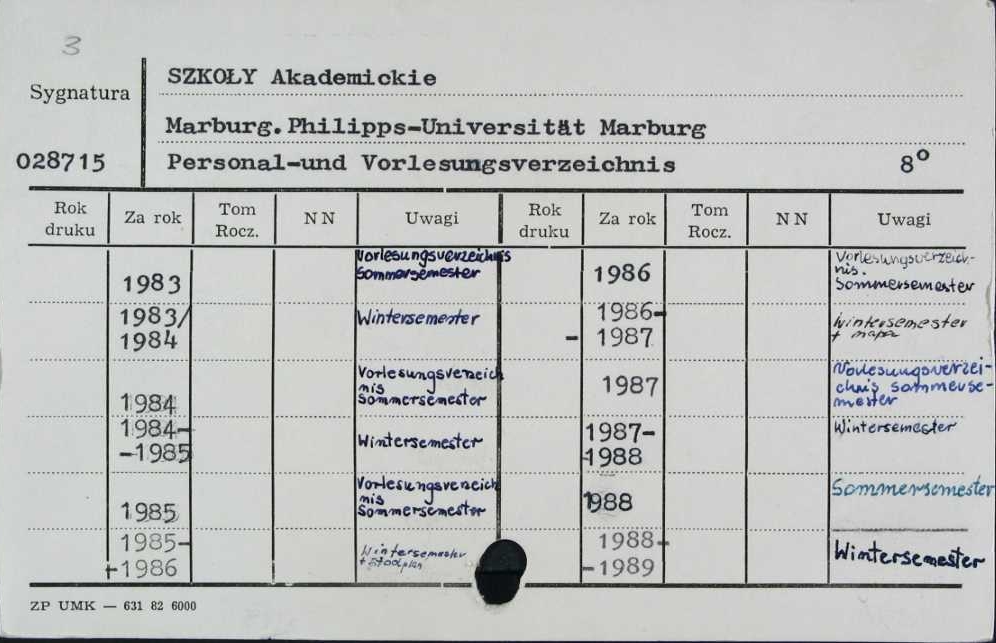 3
SZKOŁY Akademickie
Sygnatura
Marburg. Philipps-Universität Marburg
028715 Personal-und Vorlesungsverzeichnis 8°
Rok druku Za rok Tom Rocz. N N Uwagi Rok druku Za rok Tom Rocz. N N Uwagi
Vorlesungsverzeichnis
Sommersemester
1983
1983/
1984
Wintersemester
Vorlesungsverzeich
nis
Sommersemester
1984
1984-
-1985
Wintersemester
Vorlesungsverzeich
nis
Sommersemester
1985
1985-
-1986
Wintersemester
+ Stadtplan
1986
Vorlesungsverzeich-
nis.
Sommersemester
1986-
- 1987
Wintersemester
+ mapa
1987
Vorlesungsverzei-
chnis Sommerse-
mester
1987-
-1988
Wintersemester
1988
Sommersemester
1988-
-1989
Wintersemester
ZP UMK — 631 82 6000